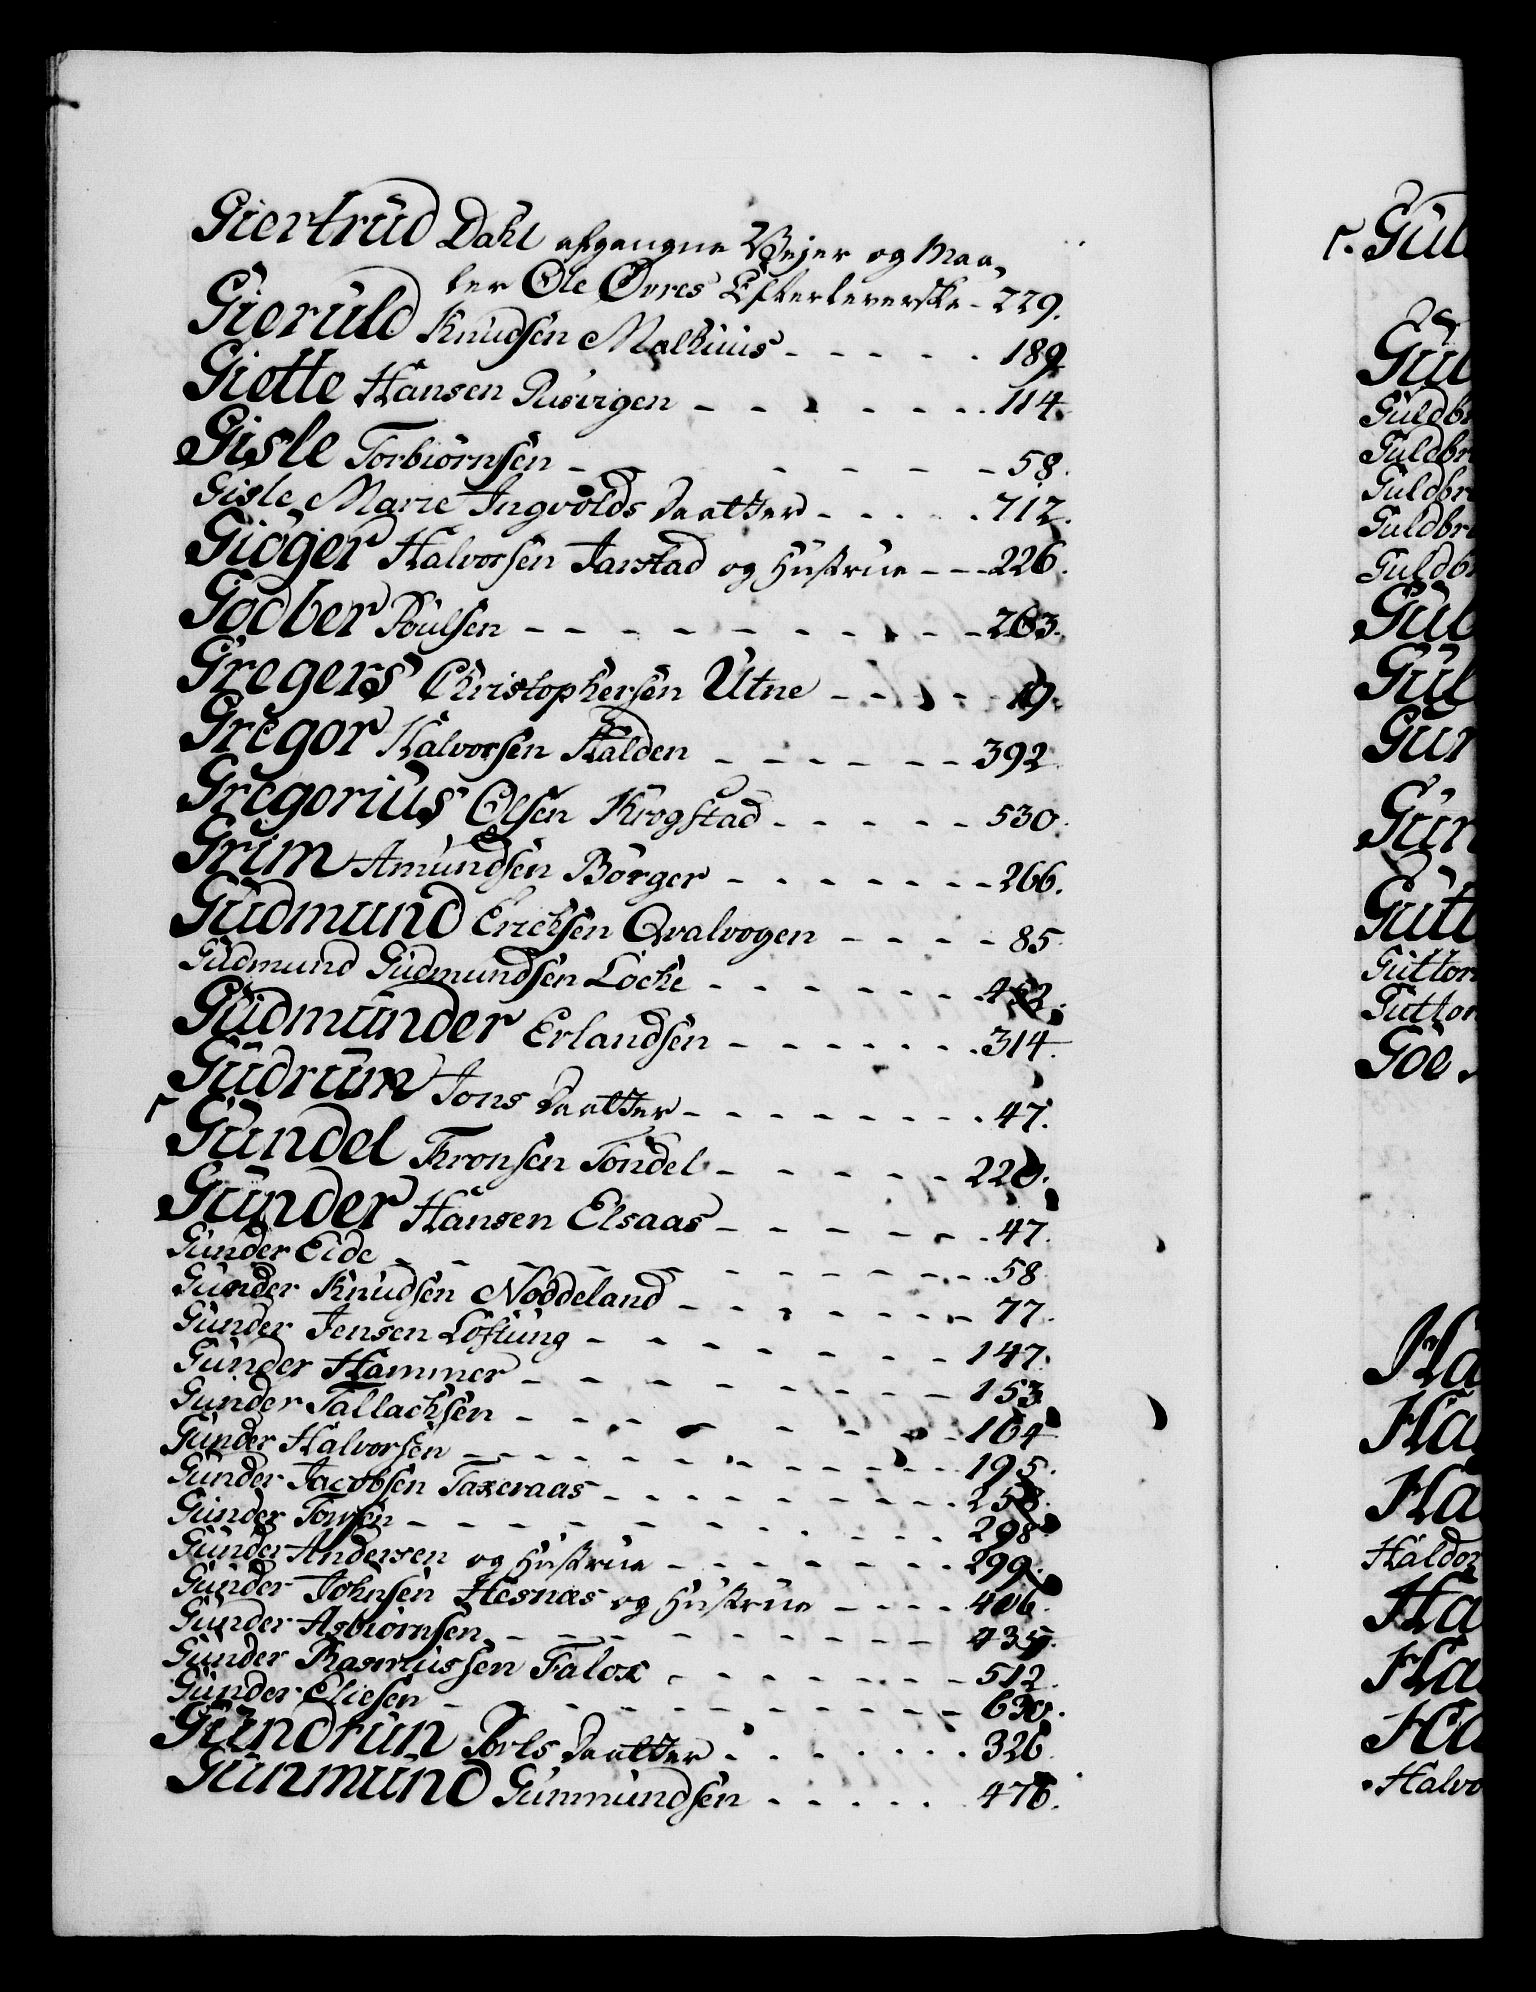 Giertrud Dahl afgangne Vejer og Maa,
ler Ole Øvres Efterleverske - 229.
Gieruld Knudsen Malhuus - - - - - 189
Giette Hansen Rusvigen - - - - - - - 114.
Gisle Torbiørnsen - - - - - - - 58.
Gisle Marie Ingvolds Daatter - - - - - 712.
Giøger Halvorsen Jarstad og Hustrue - - - 226.
Godber Poulsen - - - - - - - - - - - 263.
Gregers Christophersen Utne - - - - - 19.
Gregor Halvorsen Halden - - - - - - - 392.
Gregorius Olsen Krogstad - - - - - 530.
Grim Amundsen Børger - - - - - - - - 266.
Gudmund Erichsen Qvalvogen - - - - 85.
Gudmund Gudmundsen Løche - - - - - - - 462.
Gudmunder Erlandsen - - - - - - - 314.
Gudrum Jons Daatter - - - - - - - - 47.
Gundel Thronsen Tondel - - - - - - 220.
Gunder Hansen Elsaas - - - - - - - 47.
Gunder Eide - - - - - - - - - - - 58
Gunder Knudsen Noddeland - - - - - - - - 77.
Gunder Jensen Løftung - - - - - - - - 147.
Gunder Hammer - - - - - - - - - - 153
Gunder Tallachsen - - - - - - - - - - 164
Gunder Halvorsen - - - - - - - - - - - 195.
Gunder Jacobsen Taxeraas - - - - - - - - - 258.
Gunder Torsen - - - - - - - - - - - 298
Gunder Andersen og Hustrue - - - - - - - 299.
Gunder Johnsen Hesnæs og Hustrue - - - - 406.
Gunder Asbiørnsen - - - - - - - - - 435.
Gunder Rasmussen Falox - - - - - - - - 512.
Gunder Eliesen - - - - - - - - - - 630.
Gundrun Poels Daatter - - - - - - - 326.
Gunmund Gunmundsen - - - - - - 476.
Gul
Gul
Guldbr
Guldbr
Guldbr
Guldbr
Guldbr
Gul
Gul
Gun
Gun
Gutt
Guttor
Guttor
Goe
Ha
Ha
Ha
Haldor
Ha
Ha
Ha
Halvo